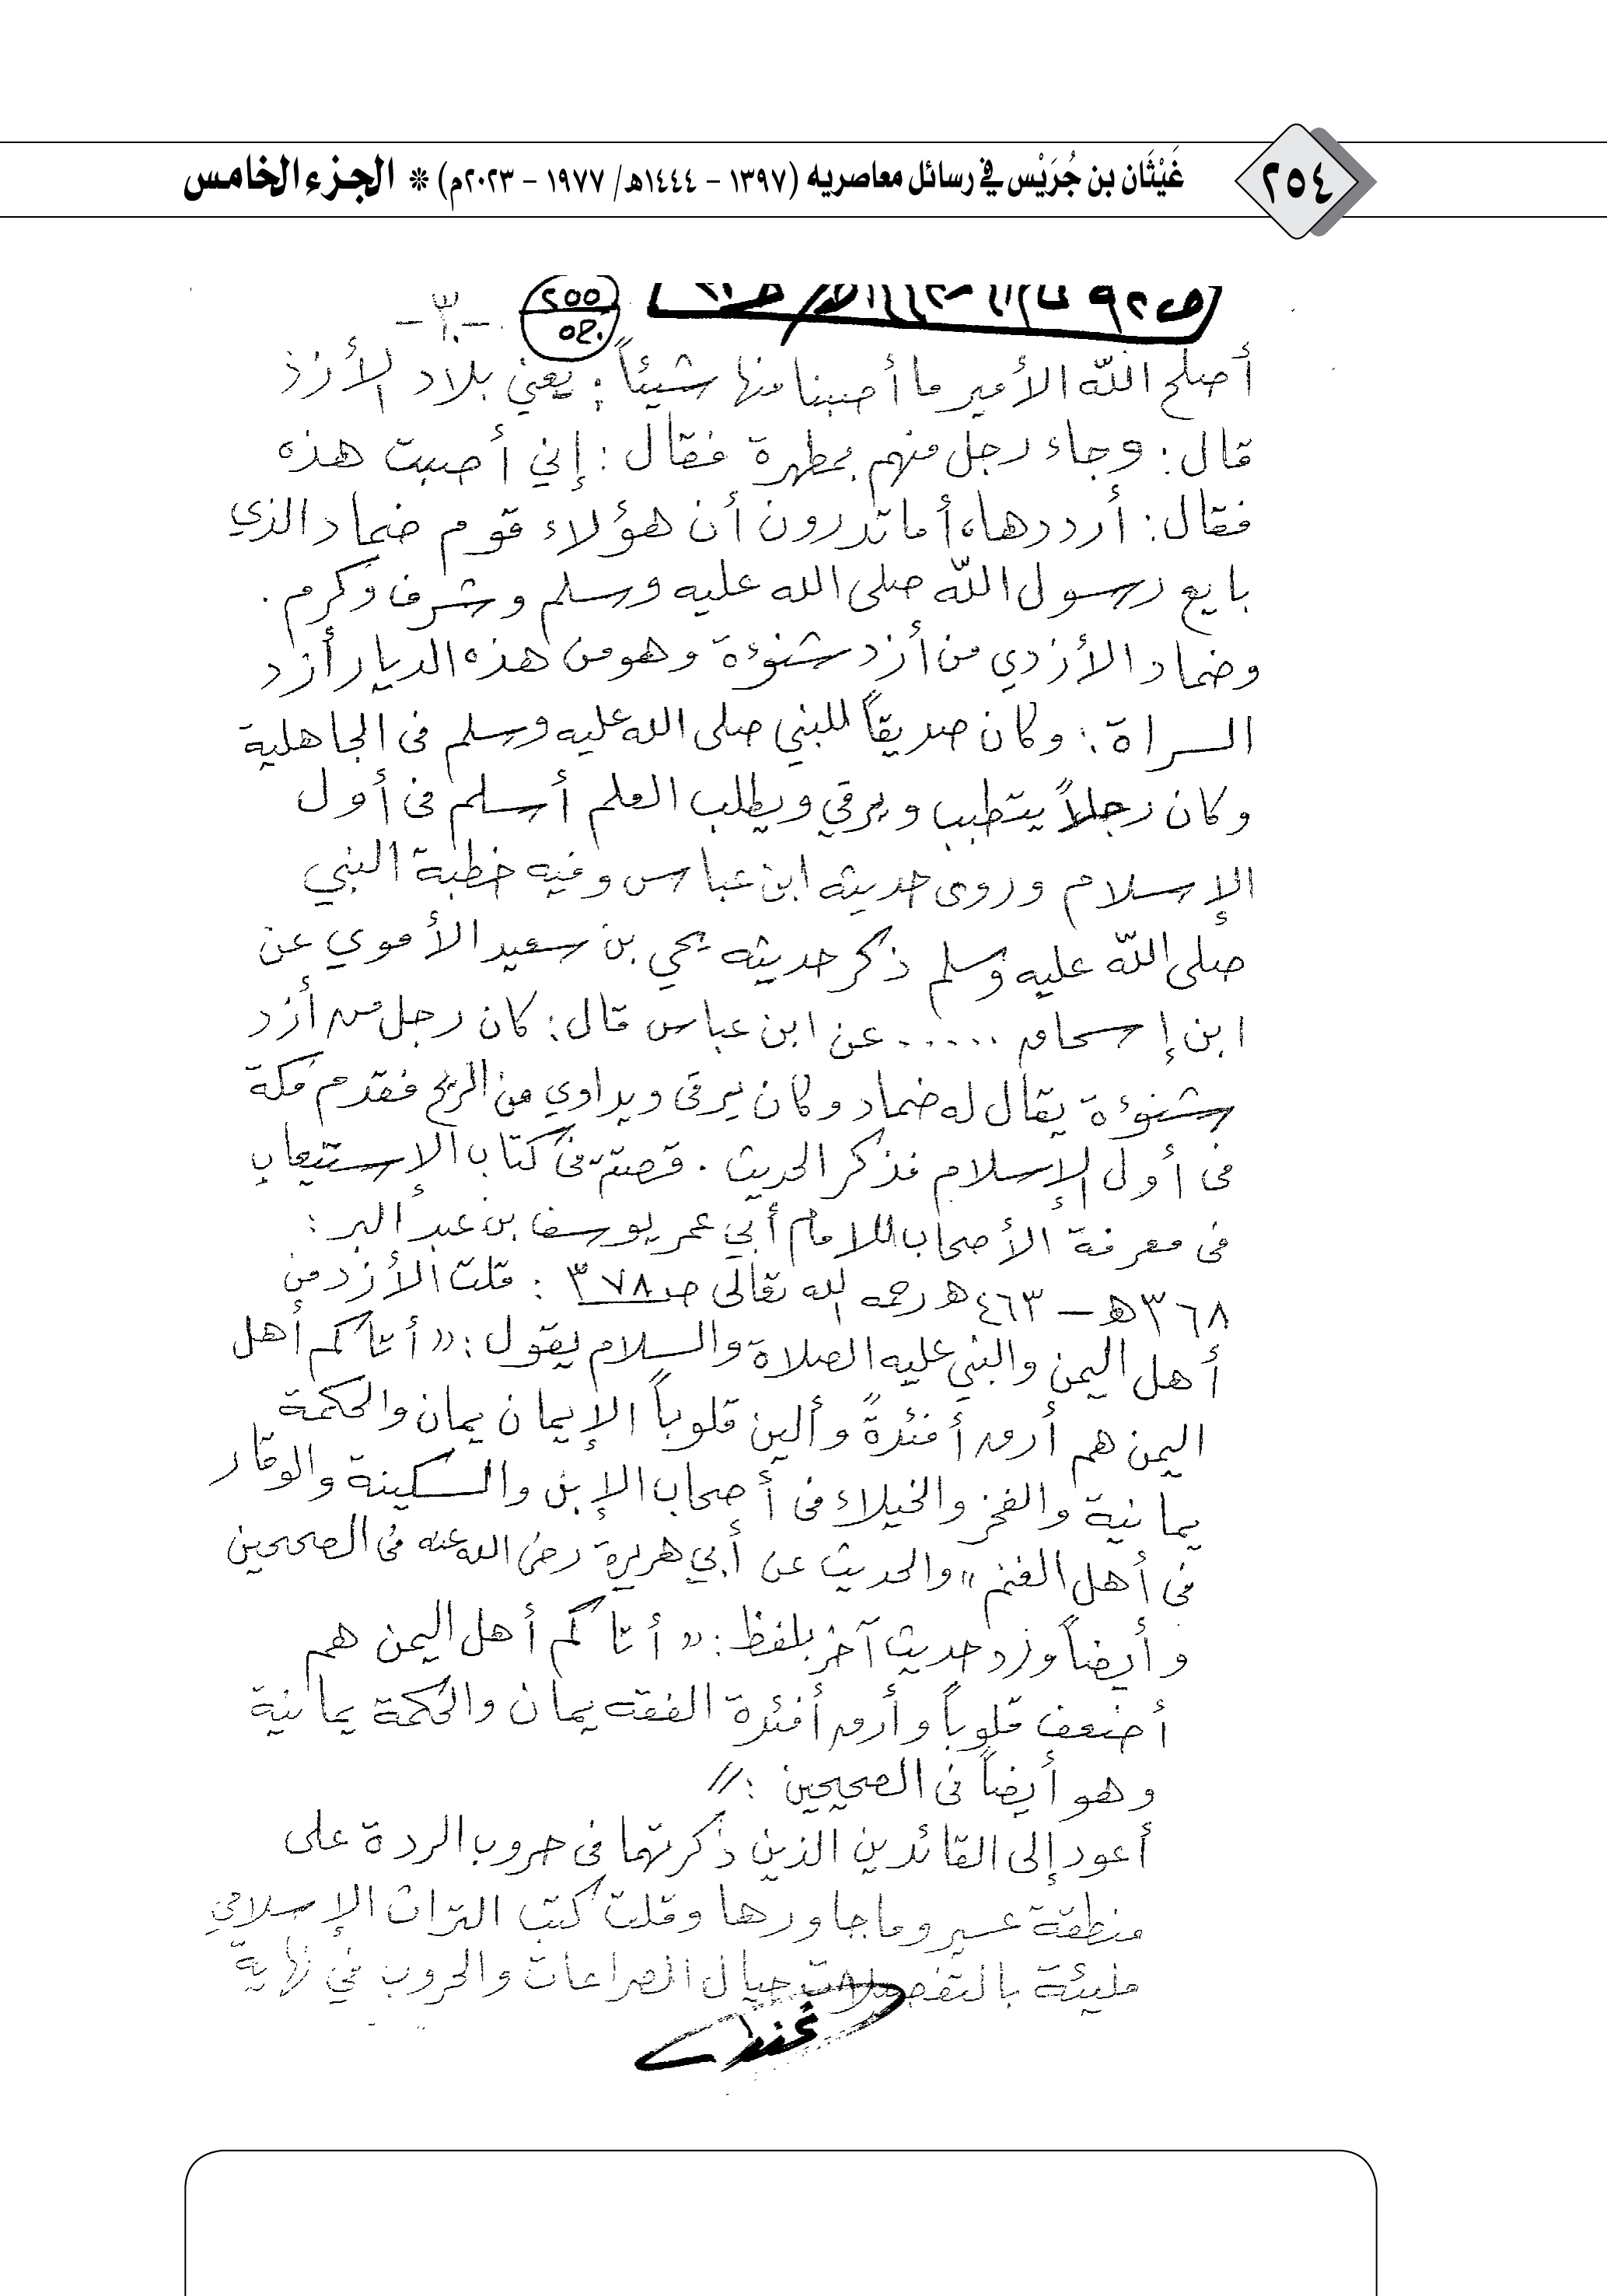 ٢٥٤
غَيْثَان بن جُرَيْس في رسائل معاصريه (١٣٩٧ - ١٤٤٤هـ/ ١٩٧٧ - ٢٠٢٣م) * الجزء الخامس
٢٥٥
-٣-
أصلح اللّه الأمير ما أصبنا منها شيئاً: يعني بلاد الأزد
قال: وجاء رجل منهم بمطهرة فقال: إني أصبت هذه
فقال: أرددها، أما تدرون أن هؤلاء قوم ضماد الذي
بايع رسول اللّه صلى الله عليه وسلم وشرف وكرم.
وضماد الأزدي من أزد شنوءة وهو من هذه الديار أزد
السراة: وكان صديقاً للنبي صلى الله عليه وسلم في الجاهلية
وكان رجلاً يتطبب ويرقي ويطلب العلم أسلم في أول
الإسلام وروى حديثه ابن عباس وفيه خطبة النبي
صلى اللّه عليه وسلم ذكر حديثه يحي بن سعيد الأموي عن
ابن إسحاق ..... عن ابن عباس قال: كان رجل من أزد
شنوءة يقال له ضماد وكان يرقى ويداوي من الريح فقدم مكة
في أول الإسلام فذكر الحديث. قصته في كتاب الإستيعاب
في معرفة الأصحاب للامام أبي عمر يوسف بن عبد البر:
٣٦٨هـ - ٤٦٣هـ رحمه الله تعالى صـ٣٧٨: قلت الأزد من
أهل اليمن والنبي عليه الصلاة والسلام يقول: «أتاكم أهل
اليمن هم أرق أفئدةً وألين قلوباً الإيمان يمان والحكمة
يمانية والفخر والخيلاء في أصحاب الإبل والسكينة والوقار
في أهل الغنم» والحديث عن أبي هريرة رضي الله عنه في الصحيحين
وأيضاً ورد حديث آخر بلفظ: «أتاكم أهل اليمن هم
أضعف قلوباً وأرق أفئدة الفقه يمان والحكمة يمانية
وهو أيضاً في الصحيحين: //
أعود إلى القائدين الذين ذكرتهما في حروب الردة على
منطقة عسير وما جاورها وقلت كتب التراث الإسلامي
مليئة بالتفصيلات حيال الصراعات والحروب في نهاية